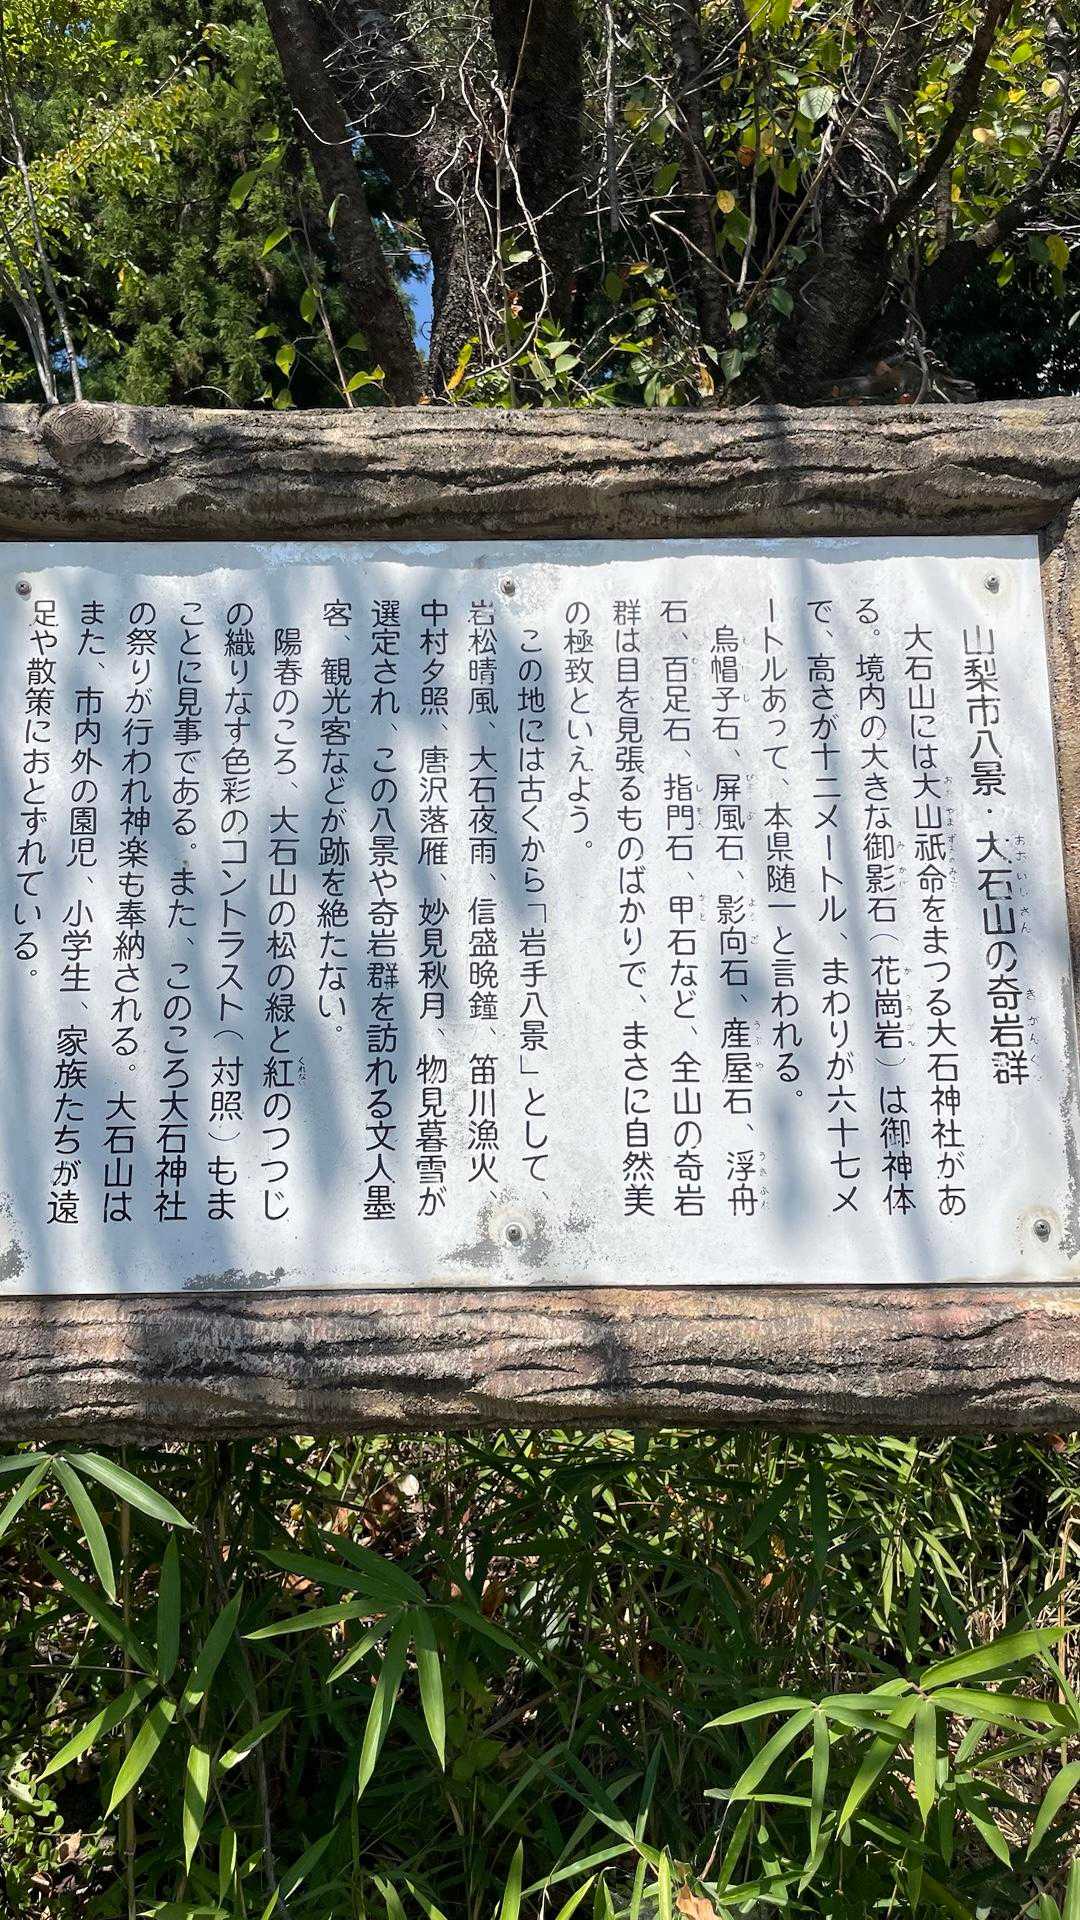 山梨市八景・大石山の奇岩群
大石山には大山祇命をまつる大石神社があ
る。境内の大きな御影石(花崗岩)は御神体
で、高さが十二メートル、まわりが六十七メ
ートルあって、本県随一と言われる。
烏帽子石、屏風石、影向石、産屋石、浮舟
石、百足石、指門石、甲石など、全山の奇岩
群は目を見張るものばかりで、まさに自然美
の極致といえよう。
この地には古くから「岩手八景」として、
岩松晴風、大石夜雨、信盛晩鐘、笛川漁火、
中村夕照、唐沢落雁、妙見秋月、物見暮雪が
選定され、この八景や奇岩群を訪れる文人墨
客、観光客などが跡を絶たない。
陽春のころ、大石山の松の緑と紅のつつじ
の織りなす色彩のコントラスト(対照)もま
ことに見事である。また、このころ大石神社
の祭りが行われ神楽も奉納される。大石山は
また、市内外の園児、小学生、家族たちが遠
足や散策におとずれている。